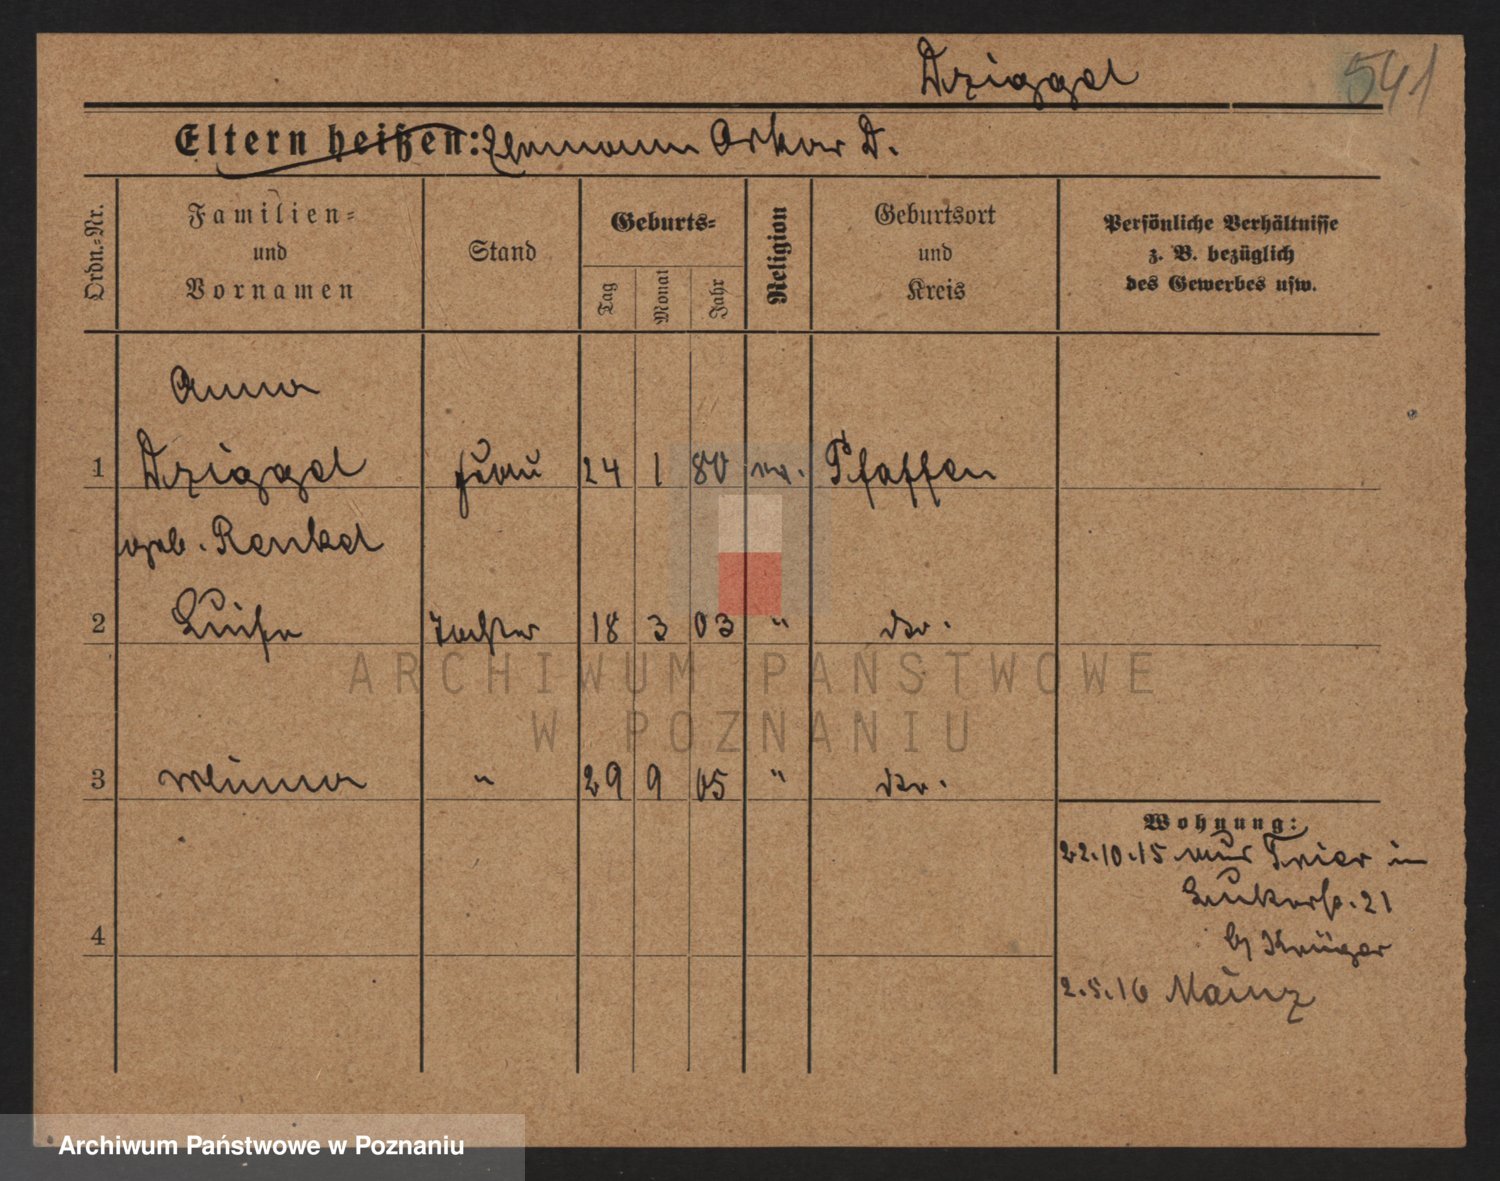 Dziggel 541
Eltern heißen: Ehemann Oskar D.
Ordn.-Nr.
Familien-
und
Vornamen
Stand
Geburts-
Tag
Monat
Jahr
Religion
Geburtsort
und
Kreis
Persönliche Verhältnisse
z. B. bezüglich
des Gewerbes usw.
Anna
1 Dziggel Frau 24 1 80 ev. Pfaffen
geb. Renkel
2 Luise Tochter 18 3 03 " do.
ARCHIWUM PAŃSTWOWE
W POZNANIU
3 Minna " 29 9 05 " do.
Wohnung:
22.10.15 aus Trier in
21
4
b/ Krüger
2.5.16 Mainz
Archiwum Państwowe w Poznaniu